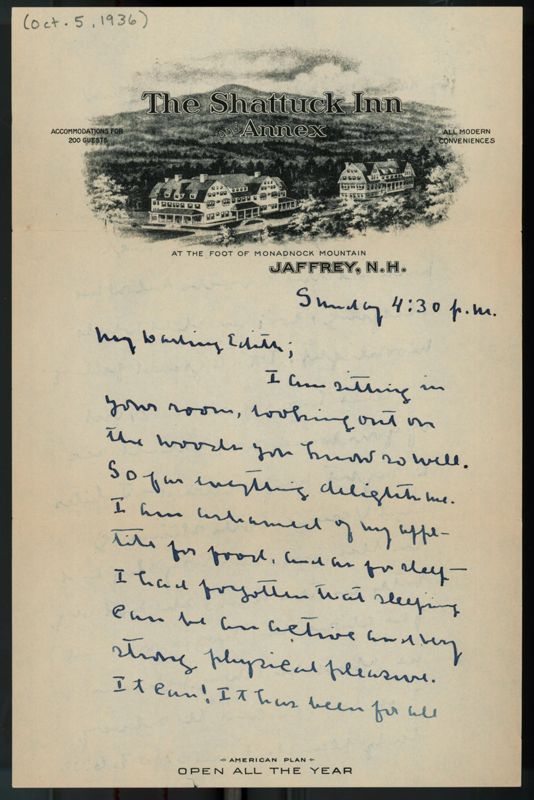 (Oct. 5, 1936)
The Shattuck Inn
and Annex
ACCOMMODATIONS FOR
200 GUESTS
ALL MODERN
CONVENIENCES
AT THE FOOT OF MONADNOCK MOUNTAIN
JAFFREY, N.H.
Sunday 4:30 p.m.
My Darling Edith;
I am sitting in
your room, looking out on
the woods you know so well.
So far everything delights me.
I am ashamed of my appe-
tite for food, and as for sleep—
I had forgotten that sleeping
can be an active and very
strong physical pleasure.
It can! It has been for all
AMERICAN PLAN
OPEN ALL THE YEAR